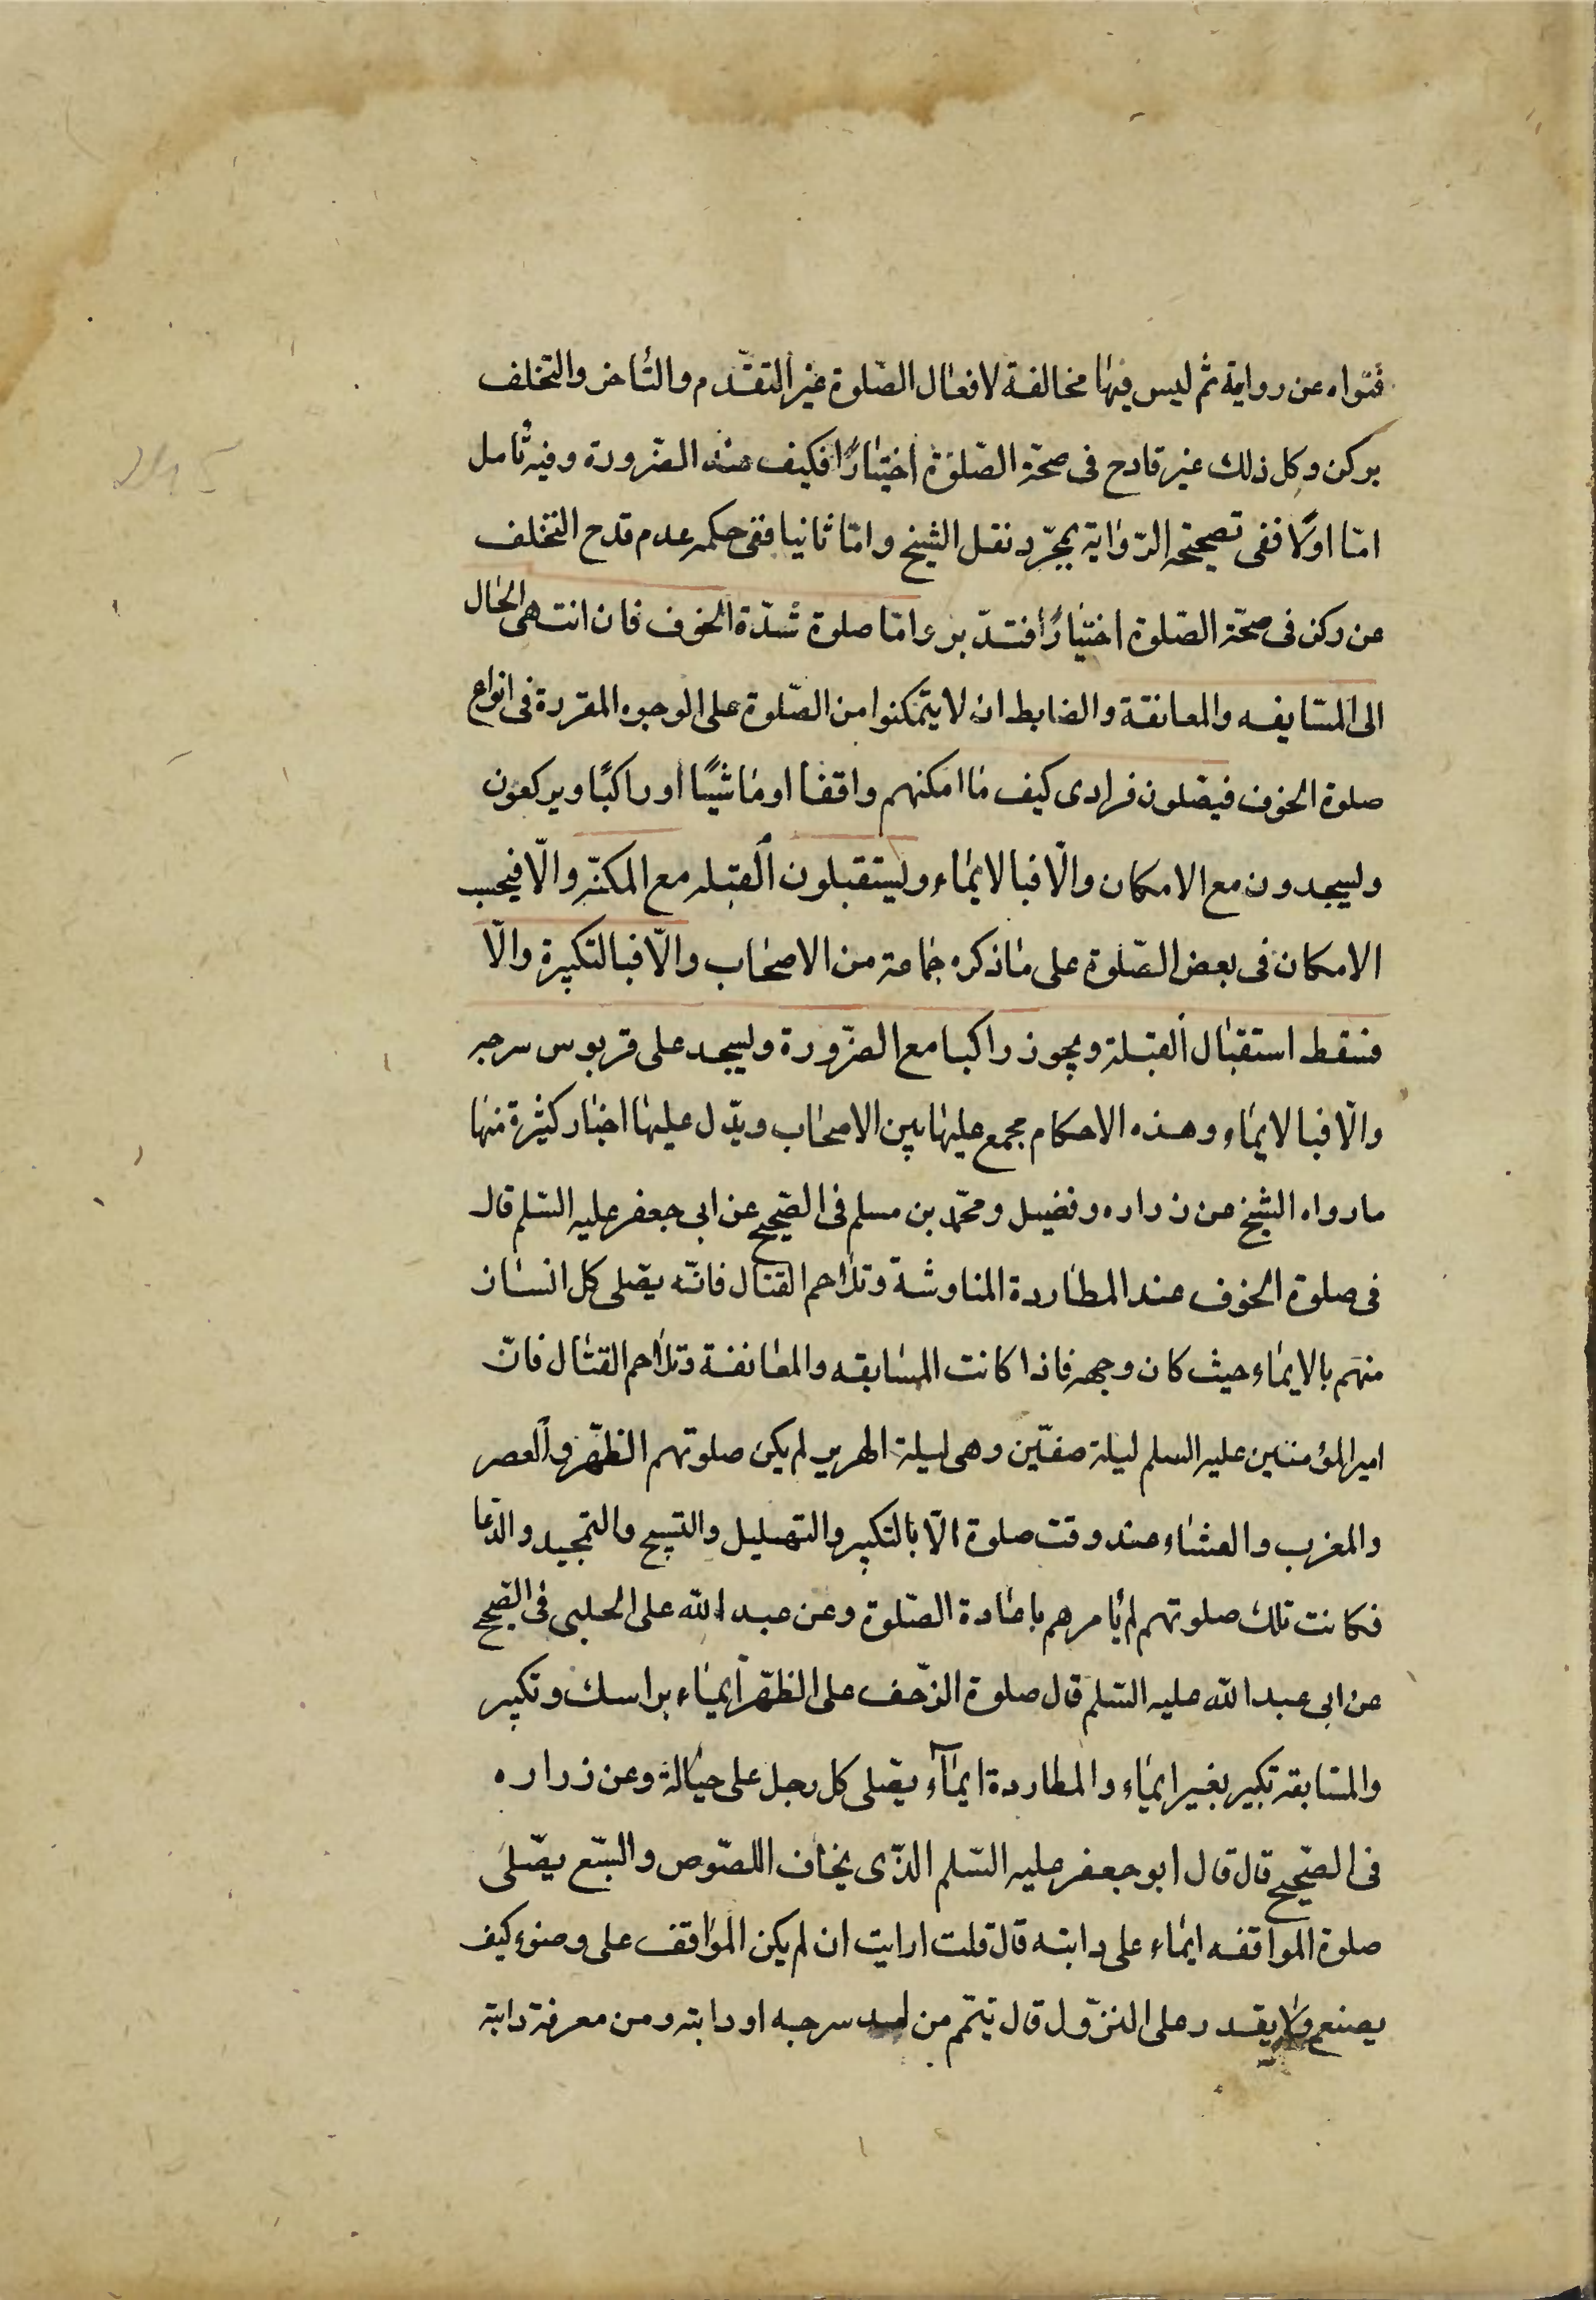 فتواه عن رواية ثم ليس فيها مخالفة لافعال الصّلوة غير التقدّم والتأخر والتخلف
بركن وكل ذلك غير قادح فى صحّة الصّلوة اختيارًا فكيف عند الضّرورة وفيه تأمل
امّا اولًا ففى تصحيحه الرّواية بمجرّد نقل الشيخ وامّا ثانيا ففى حكمه عدم قدح التخلف
عن ركن فى صحّة الصّلوة اختيارًا فتدبّر وامّا صلوة شدّة الخوف فان انتهى الحال
الى المسايفه والمعانقة والضابط ان لا يتمكنوا من الصّلوة على الوجوه المقررة فى انواع
صلوة الخوف فيصّلون فرادى كيف ما امكنهم واقفا او ماشيًا او راكبًا ويركعون
وليسجدون مع الامكان والّا فبالايماء وليستقبلون القبله مع المكنّه والّا فبحسب
الامكان فى بعض الصّلوة على ما ذكره جماعة من الاصحاب والّا فبالتكبيرة والّا
فسقط استقبال القبلة ويجوز راكبا مع الضّرورة وليسجد على قربوس سرجه
والّا فبالايماء وهذه الاحكام مجمع عليها بين الاصحاب ويدّل عليها اخبار كثيرة منها
ما رواه الشيخ عن زراره وفضيل ومحمّد بن مسلم فى الصّحيح عن ابى جعفر عليه السّلم قال
فى صلوة الخوف عند المطاردة المناوشة وتلاحم القتال فانّه يصّلى كل انسان
منهم بالايماء حيث كان وجهه فاذا كانت المسابقه والمعانقة وتلاحم القتال فانّ
امير المؤمنين عليه السلم ليلة صفّين وهى ليلة الهرير لم يكن صلوتهم الظّهر والعصر
والمغرب والعشاء عند وقت صلوة الّا بالتكبير والتهليل والتسبيح والتمجيد والدّعا
فكانت تلك صلوتهم لم يأمرهم باعادة الصّلوة وعن عبد الله على الحلبى فى الصّحيح
عن ابى عبد الله عليه السّلم قال صلوة الزّحف على الظّهر ايماء براسك وتكبير
والمسّابقه تكبير بغير ايماء والمطاردة ايماء يصّلى كل رجل على حياله وعن زراره
فى الصّحيح قال قال ابو جعفر عليه السّلم الذّى يخاف اللصّوص والسّبع يصّلى
صلوة المواقفه ايماء على دابته قال قلت ارايت ان لم يكن المواقف على وضوء كيف
يصنع ولا يقدر على النزّول قال تيتمّم من لبد سرجه او دابته ومن معرفة دابته